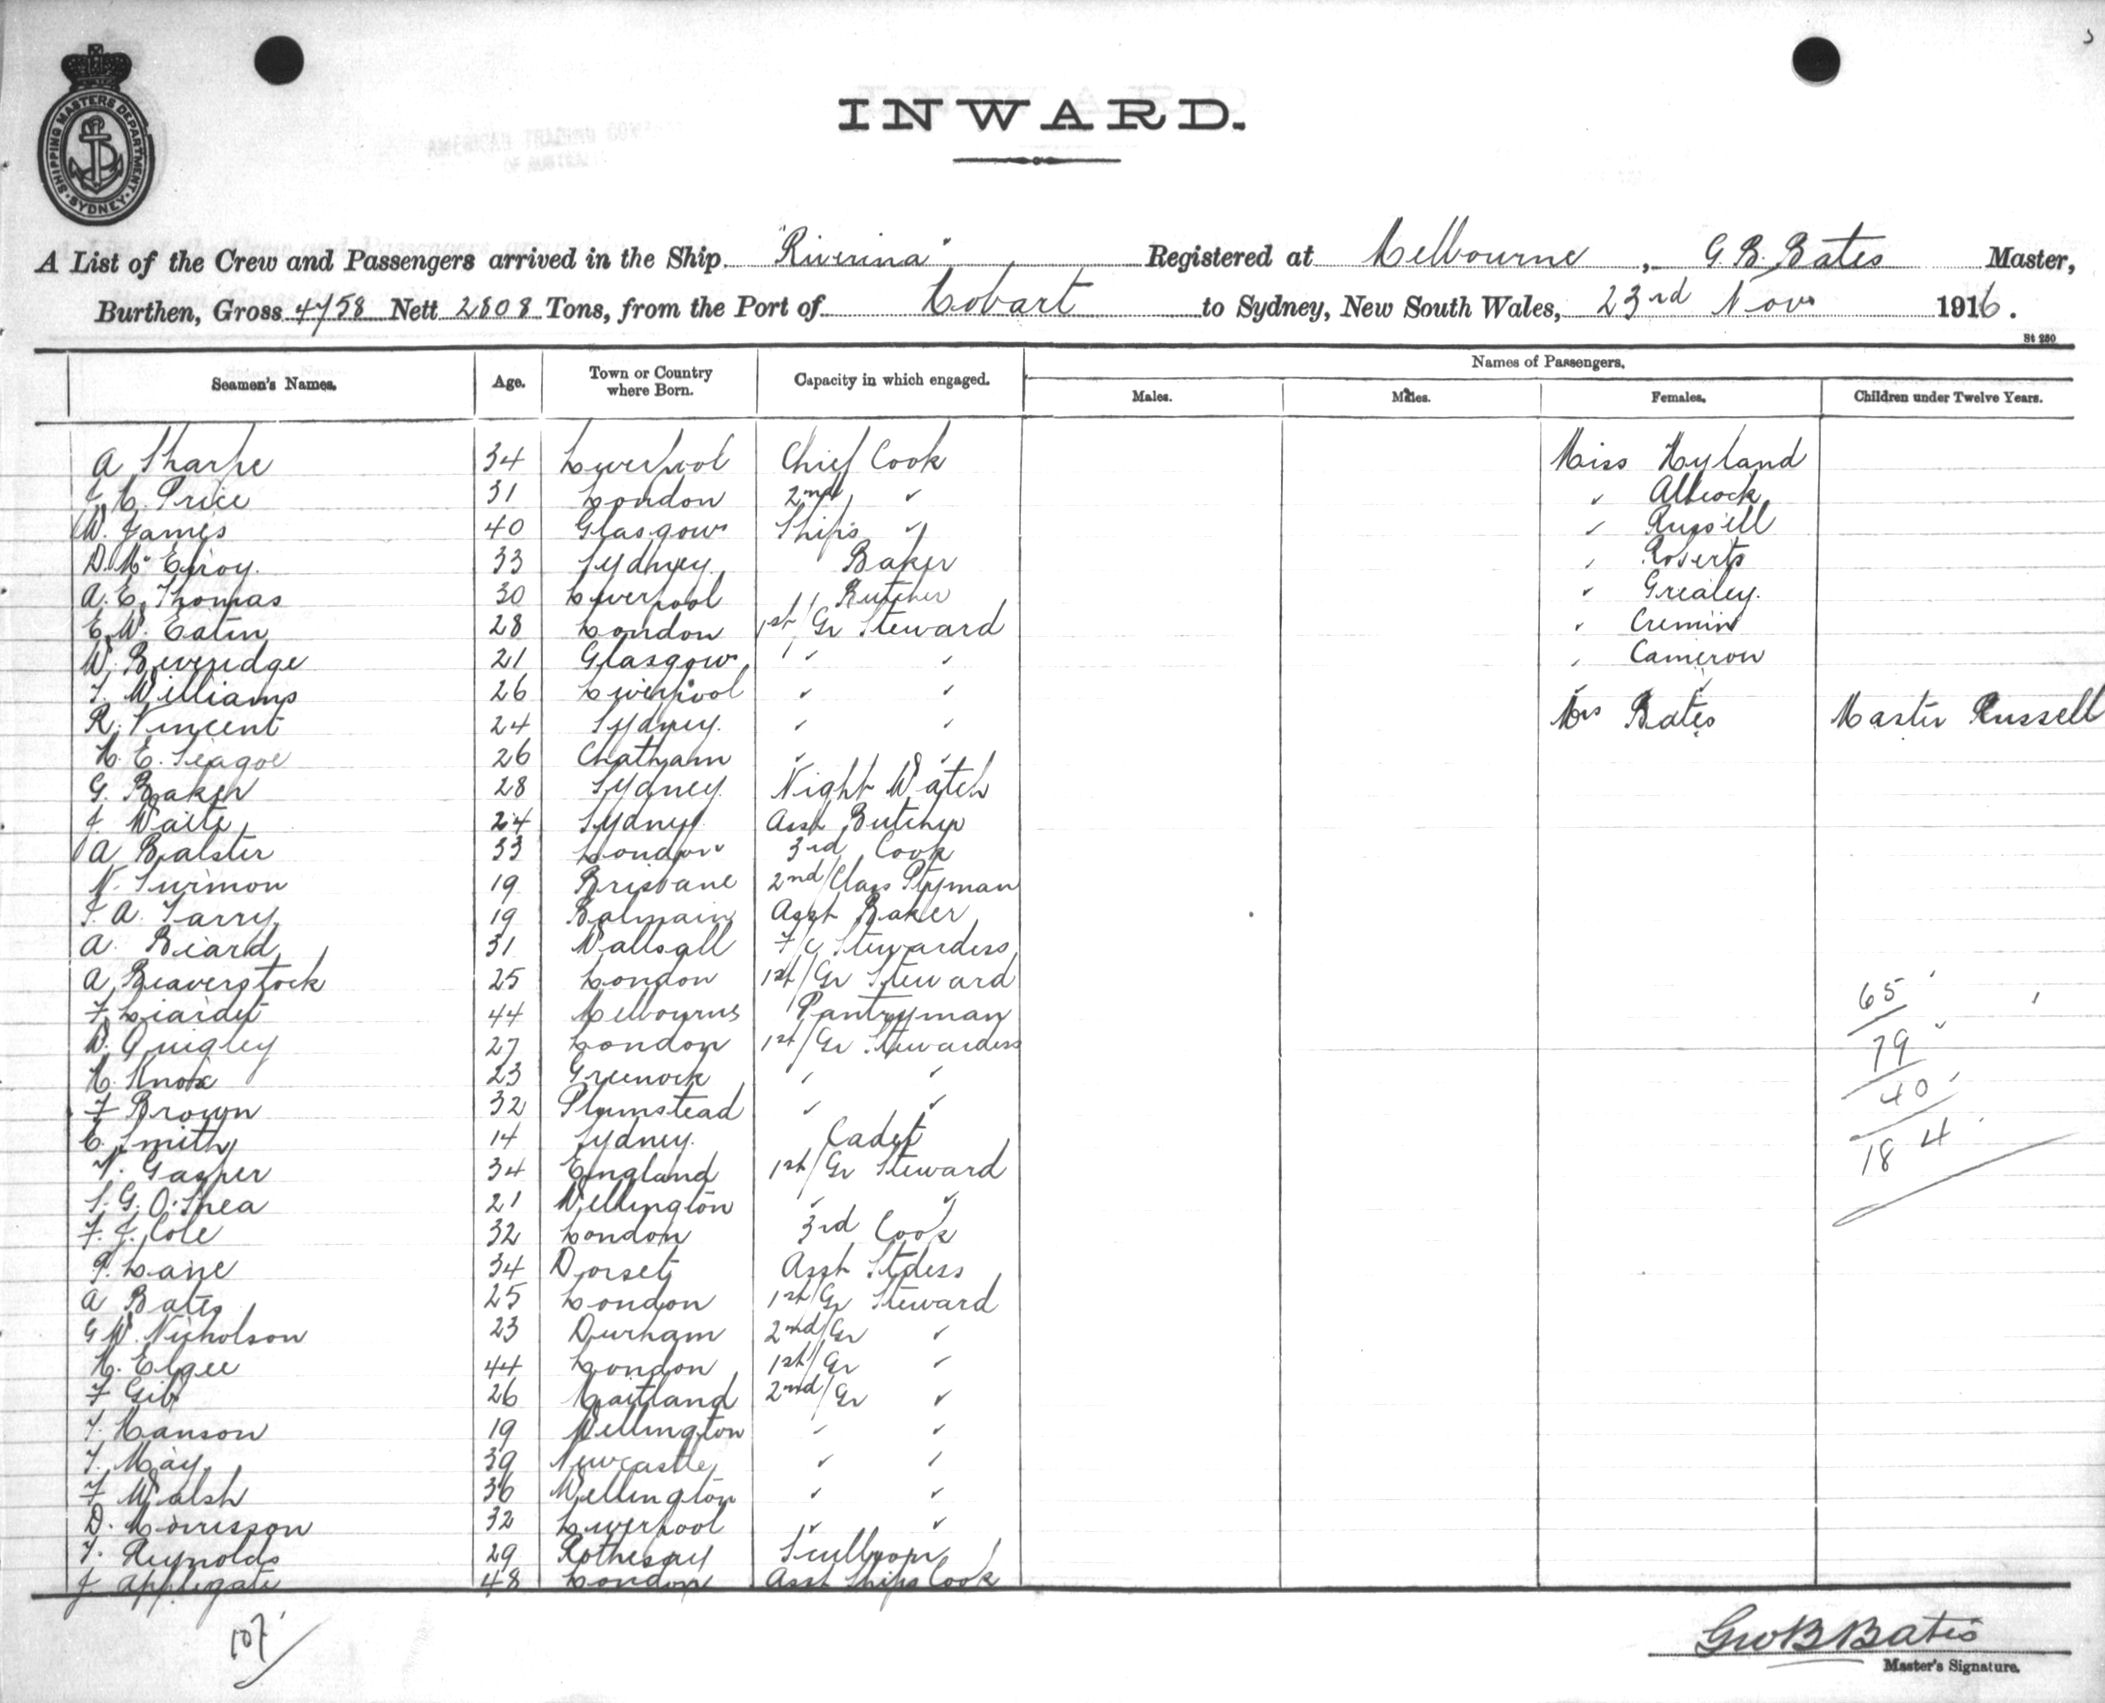 SHIPPING MASTERS DEPARTMENT SYDNEY
INWARD.
A List of the Crew and Passengers arrived in the Ship "Riverina" Registered at Melbourne, G B. Bates Master,
Burthen, Gross 4758 Nett 2808 Tons, from the Port of Hobart to Sydney, New South Wales, 23rd Nov 1916.
St 250
Seamen's Names. Age. Town or Country where Born. Capacity in which engaged. Names of Passengers.
Males. Males. Females. Children under Twelve Years.
A Sharpe 34 Liverpool Chief Cook Miss Hyland
J. H. Price 31 London 2nd " " Allcock
W. James 40 Glasgow Ships " " Russell
D. Mc Elroy. 33 Sydney. Baker " Roberts
A. E. Thomas 30 Liverpool Butcher " Grealey.
E. W. Eatin 28 London 1st/Gr Steward " Cremin
W. Beveridge 21 Glasgow " " " Cameron
T. Williams 26 Liverpool " "
R. Vincent 24 Sydney. " " Mrs Bates Master Russell
H. E. Seagoe 26 Chatham " "
G. Baker 28 Sydney Night Watch
J. Waite 24 Sydney Asst Butcher
A Balster 33 London 3rd Cook
N. Surmon 19 Brisbane 2nd/Class Ptyman
F. A. Tarry 19 Balmain Asst Baker
A. Beard 31 Wallsall F/C Stewardess
A Beaverstock 25 London 1st/Gr Steward
F. Liardet 44 Melbourne Pantryman
B. Quigley 27 London 1st/Gr Stewardess
H. Knox 23 Greenock " "
F Brown 32 Plumstead " "
E. Smith 14 Sydney. Cadet
N. Gasper 34 England 1st/Gr Steward
S. G. O'Shea 21 Wellington " "
F. J. Cole 32 London 3rd Cook
P. Lane 34 Dorset Asst Stdess
A Bates 25 London 1st/Gr Steward
G W. Nicholson 23 Durham 2nd/Gr "
H. Elgee 44 London 1st/Gr "
F Gibb 26 Maitland 2nd/Gr "
T. Hanson 19 Wellington " "
T. May 39 Newcastle " "
F Walsh 36 Wellington " "
D. Morrisson 32 Liverpool " "
T. Reynolds 29 Rothesay Scullyman
J. Applegate 48 London Asst Ships Cook
65
79
40
184
107
Geo B Bates
Master's Signature.